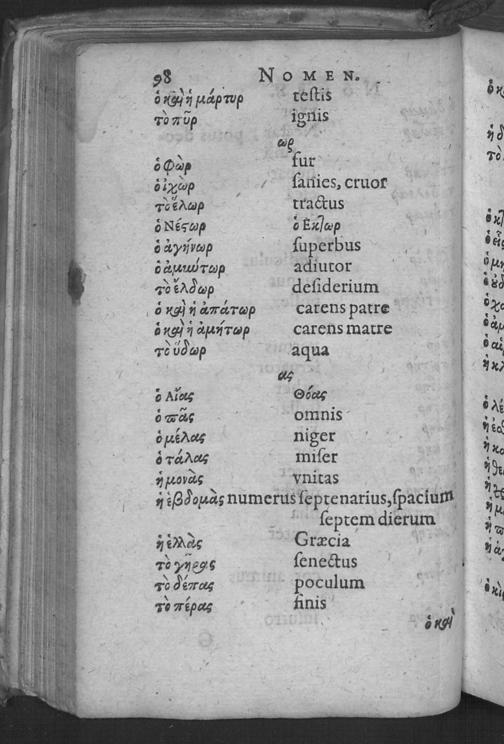 98 NOMEN.
ὁ καὶ ἡ μάρτυρ testis
τὸ πῦρ ignis
ωρ
ὁ φὼρ fur
ὁ ἰχὼρ sanies, cruor
τὸ ἕλωρ tractus
ὁ Νέστωρ ὁ Εκτωρ
ὁ ἀγήνωρ superbus
ὁ ἀμιώτωρ adiutor
τὸ ἔλδωρ desiderium
ὁ καὶ ἡ ἀπάτωρ carens patre
ὁ καὶ ἡ ἀμήτωρ carens matre
τὸ ὕδωρ aqua
ας
ὁ Αἴας Θόας
ὁ πᾶς omnis
ὁ μέλας niger
ὁ τάλας miser
ἡ μονὰς vnitas
ἡ ἑβδομὰς numerus septenarius, spacium
septem dierum
ἡ ἑλλὰς Græcia
τὸ γῆρας senectus
τὸ δέπας poculum
τὸ πέρας finis
ὁ καὶ